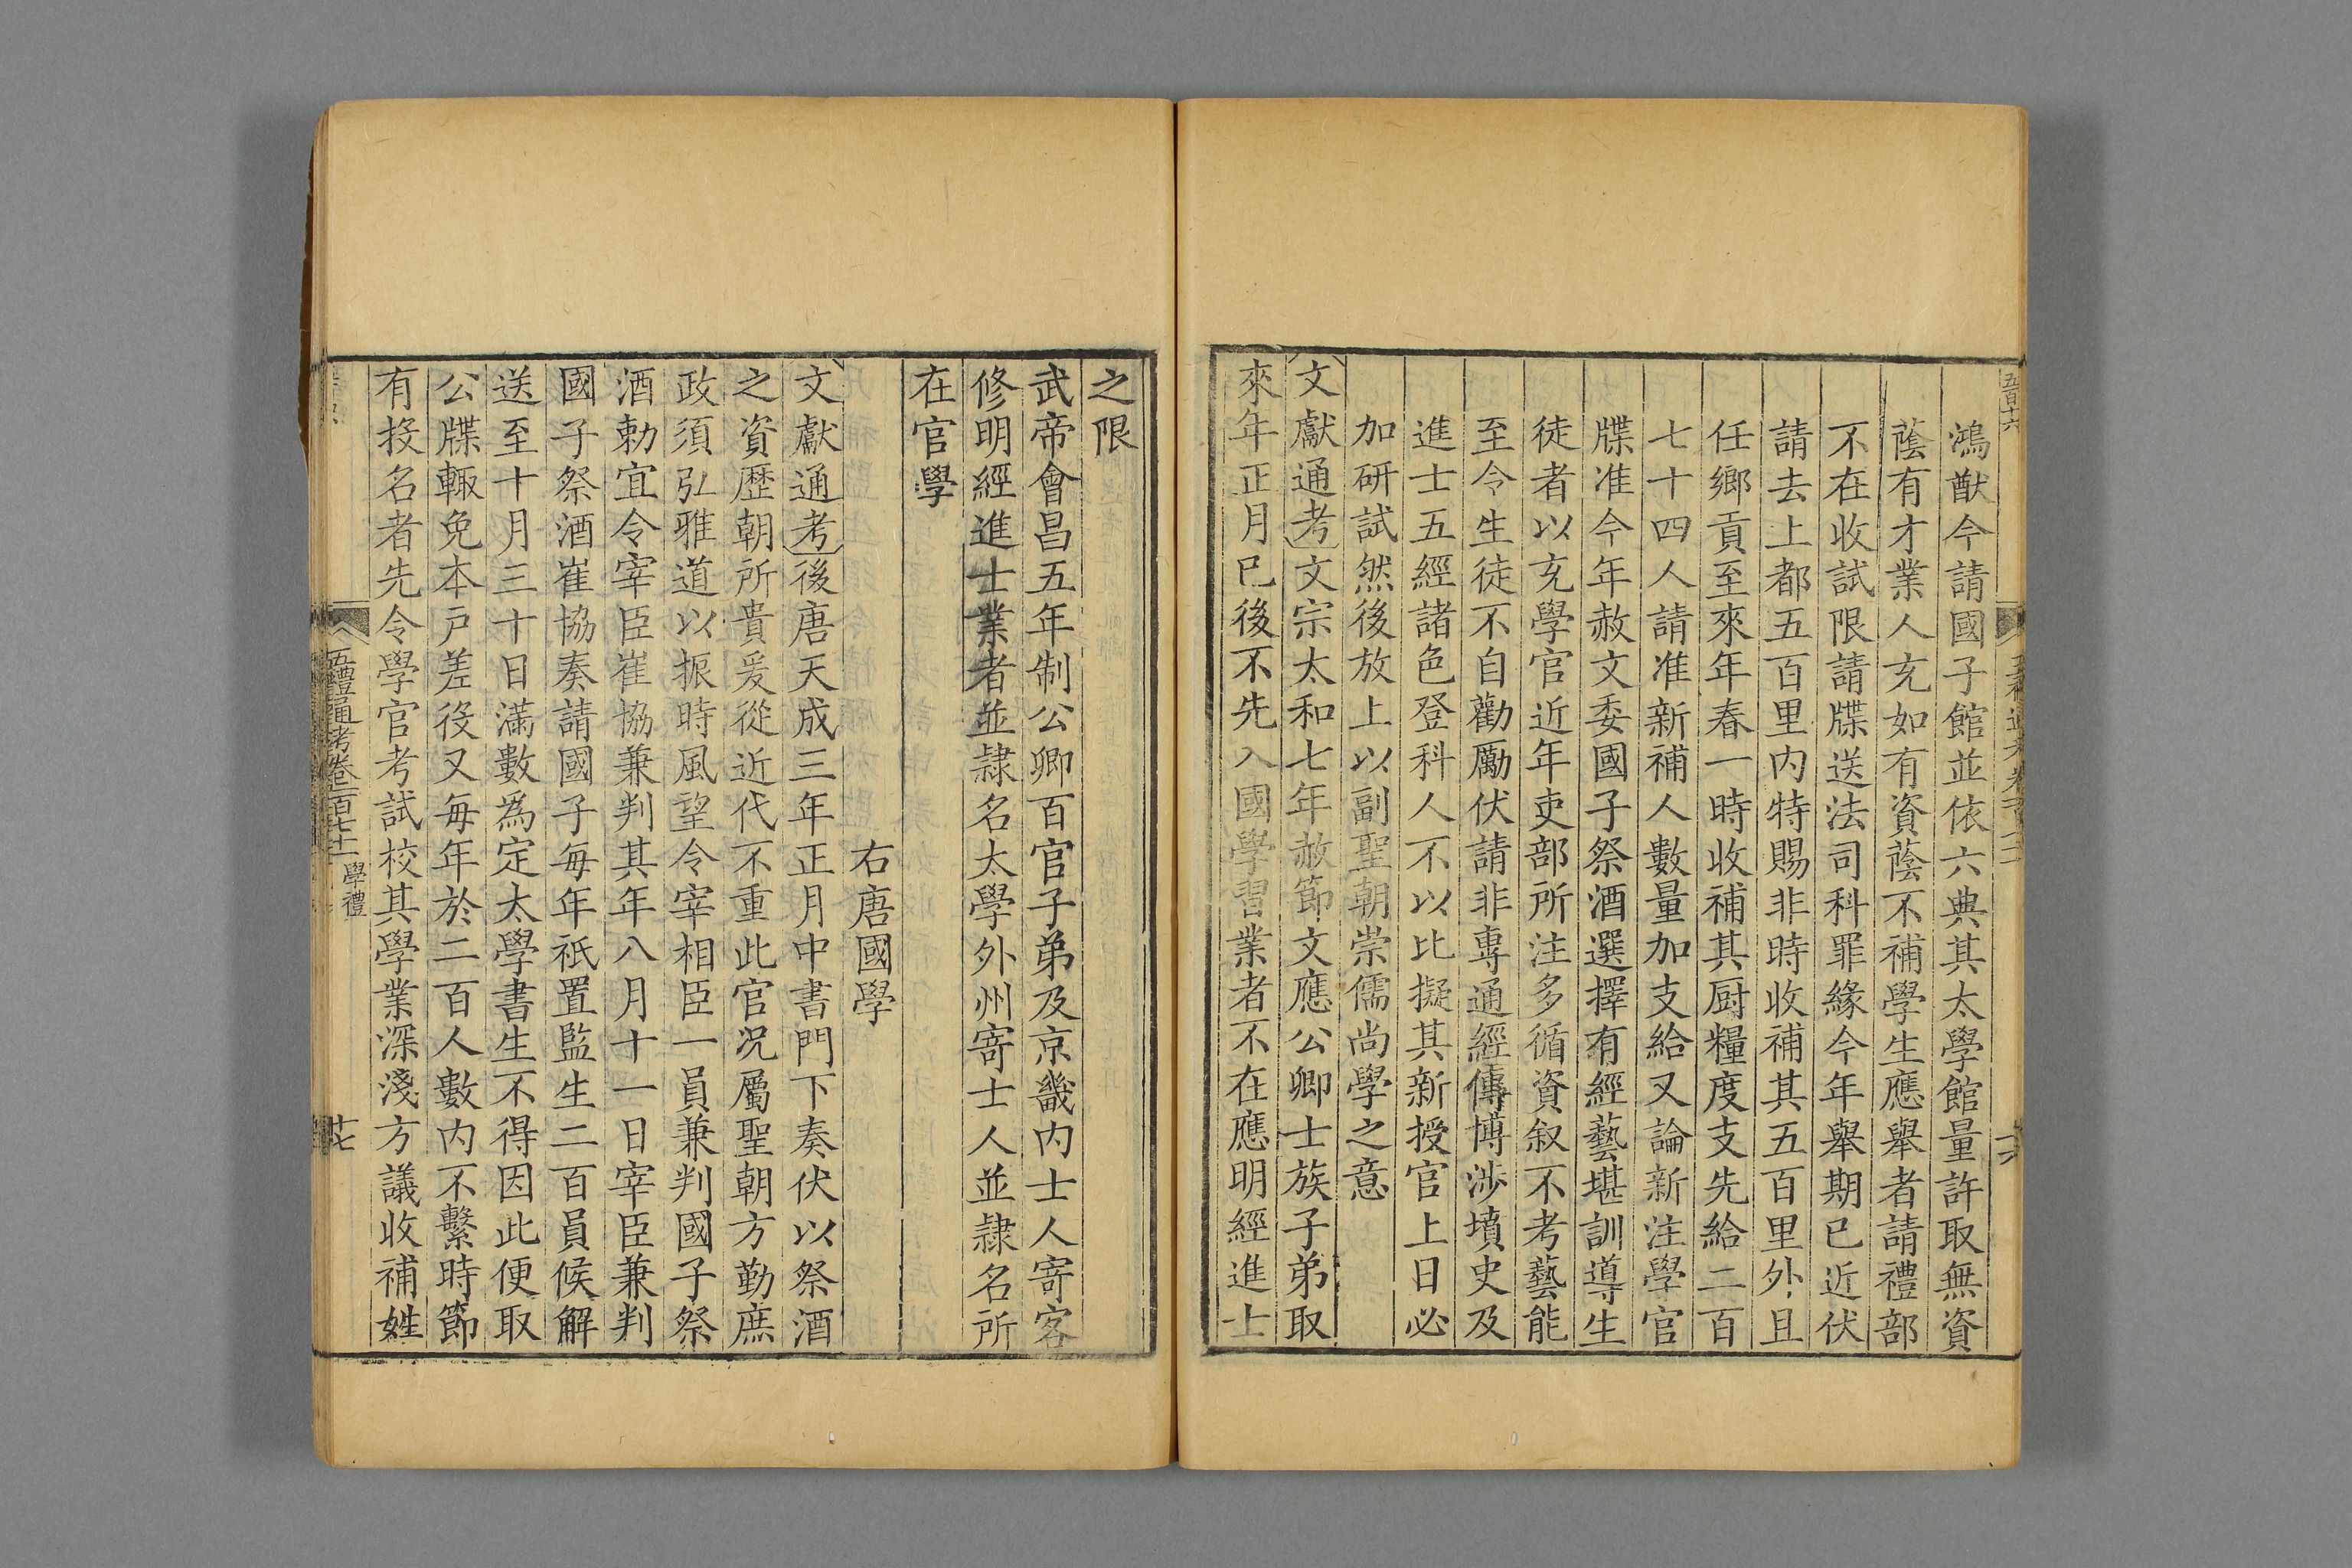 鴻猷今請國子館並依六典其太學館量許取無資
蔭有才業人充如有資蔭不補學生應舉者請禮部
不在收試限請牒送法司科罪緣今年舉期已近伏
請去上都五百里内特賜非時收補其五百里外且
任鄉貢至來年春一時收補其厨糧度支先給二百
七十四人請准新補人數量加支給又論新注學官
牒准今年赦文委國子祭酒選擇有經藝堪訓導生
徒者以充學官近年吏部所注多循資叙不考藝能
至令生徒不自勸勵伏請非專通經傳博涉墳史及
進士五經諸色登科人不以比擬其新授官上日必
加研試然後放上以副聖朝崇儒尚學之意
文獻通考文宗太和七年赦節文應公卿士族子弟取
來年正月已後不先入國學習業者不在應明經進士
之限
武帝會昌五年制公卿百官子弟及京畿内士人寄客
修明經進士業者並隷名太學外州寄士人並隷名所
在官學
右唐國學
文獻通考後唐天成三年正月中書門下奏伏以祭酒
之資歴朝所貴爰從近代不重此官况屬聖朝方勤庶
政須弘雅道以振時風望令宰相臣一員兼判國子祭
酒勅宜令宰臣崔協兼判其年八月十一日宰臣兼判
國子祭酒崔協奏請國子每年祗置監生二百員候解
送至十月三十日滿數爲定太學書生不得因此便取
公牒輙免本戸差役又每年於二百人數内不繫時節
有投名者先令學官考試校其學業深淺方議收補姓
五禮通考卷一百七十一 學禮
十七